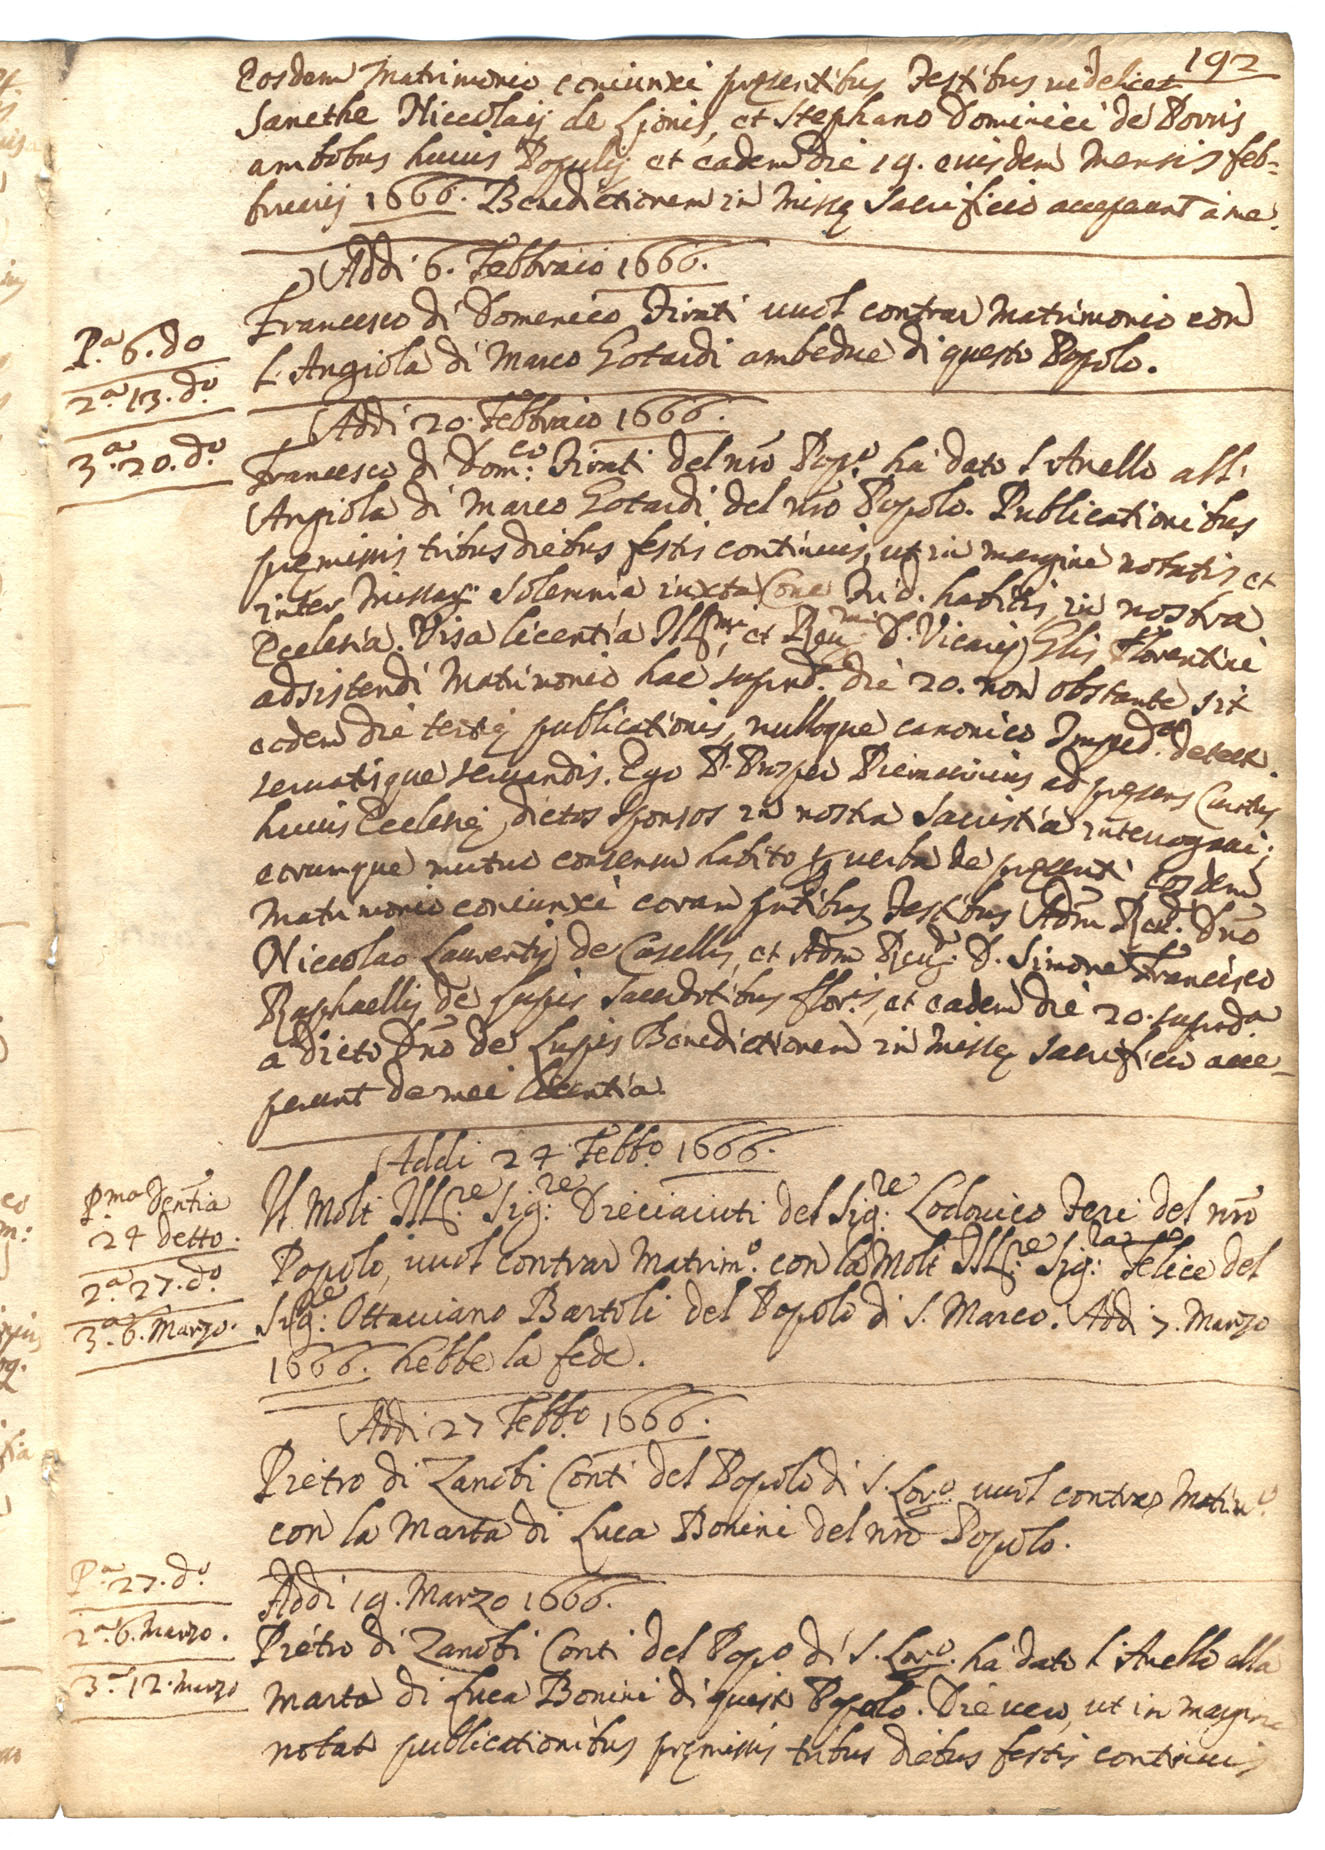 192
Eosdem Matrimonio coniunxi presentibus Testibus videlicet
Sancthe Niccolaij de Lionis, et Stephano Dominici de Borris
ambobus huius Populi, et eadem die 19. euisdem Mensis feb-
bruarij 1666. Benedictionem in Missę Sacrificio acceperunt à me.
Addi 6. Febbraio 1666.
P.ª 6. do
2.ª 13. d.º
3.ª 20. d.º
Francesco di Domenico Tirati vuol contrar Matrimonio con
l'Angiola di Marco Gotardi ambedue di questo Popolo.
Addi 20. Febbraio 1666.
Francesco di Dom.co Tirati del nrõ Pop.º ha dato l'Anello all'
Angiola di Marco Gotardi del nrõ Popolo. Publicationibus
pręmissis tribus diebus festis continuis, ut in margine notatis, et
inter Missarũ solemnia iuxta Conc. Trid. habitis in nostra
Ecclesia. Visa licentia Ill.mi, et Reu.mi D. Vicarij Glis Florentini
adsistendi Matrimonio hac suprad.ª die 20. non obstante sit
eodem die tertię publicationis, nulloque canonico Imped.º detect.
seruatisque seruandis. Ego P. Prosper ad pręsens Curatus
huius Ecclesię, dictos Sponsos in nostra Sacristia interrogaui;
eorumque mutuo consensu habito p verba de pręsenti Eosdem
Matrimonio coniunxi coram pntibus Testibus Adm. Reu.do Dnõ
Niccolao Laurentij de Casellis, et Adm Reu.do D. Simone Francisco
Raphaellis de Lupis Sacerdotibus flor.is, et eadem die 20. suprad.ª
a dicto Dnõ de Lupis Benedictionem in Missę Sacrificio acce-
perunt de mei licentia.
Addi 24 Febb.º 1666.
P.ma Dentia
24 detto.
2.ª 27. d.º
3.ª 6. Marzo.
Il Molt Ill.re Sig.re Dieciaiuti del Sig.re Lodouico Teri del nrõ
Popolo, vuol contrar Matrim.º con la Molt Ill.re Sig.ra Felice del
Sig.re Ottauiano Bartoli del Popolo di S. Marco. Addi 7. Marzo
1666. hebbe la fede.
Addi 27 Febb.º 1666.
Pietro di Zanobi Conti del Popolo di S. Lor.º vuol contrar Matrim.º
con la Marta di Luca Bonini del nrõ Popolo.
P.ª 27. d.º
2.ª 6. Marzo.
3.ª 12. Marzo
Addi 19. Marzo 1666.
Pietro di Zanobi Conti del Popo di S. Lor.º ha dato l'Anello alla
Marta di Luca Bonini di questo Popolo. Die vero, ut in margine
notat publicationibus pręmissis tribus diebus festis continuis